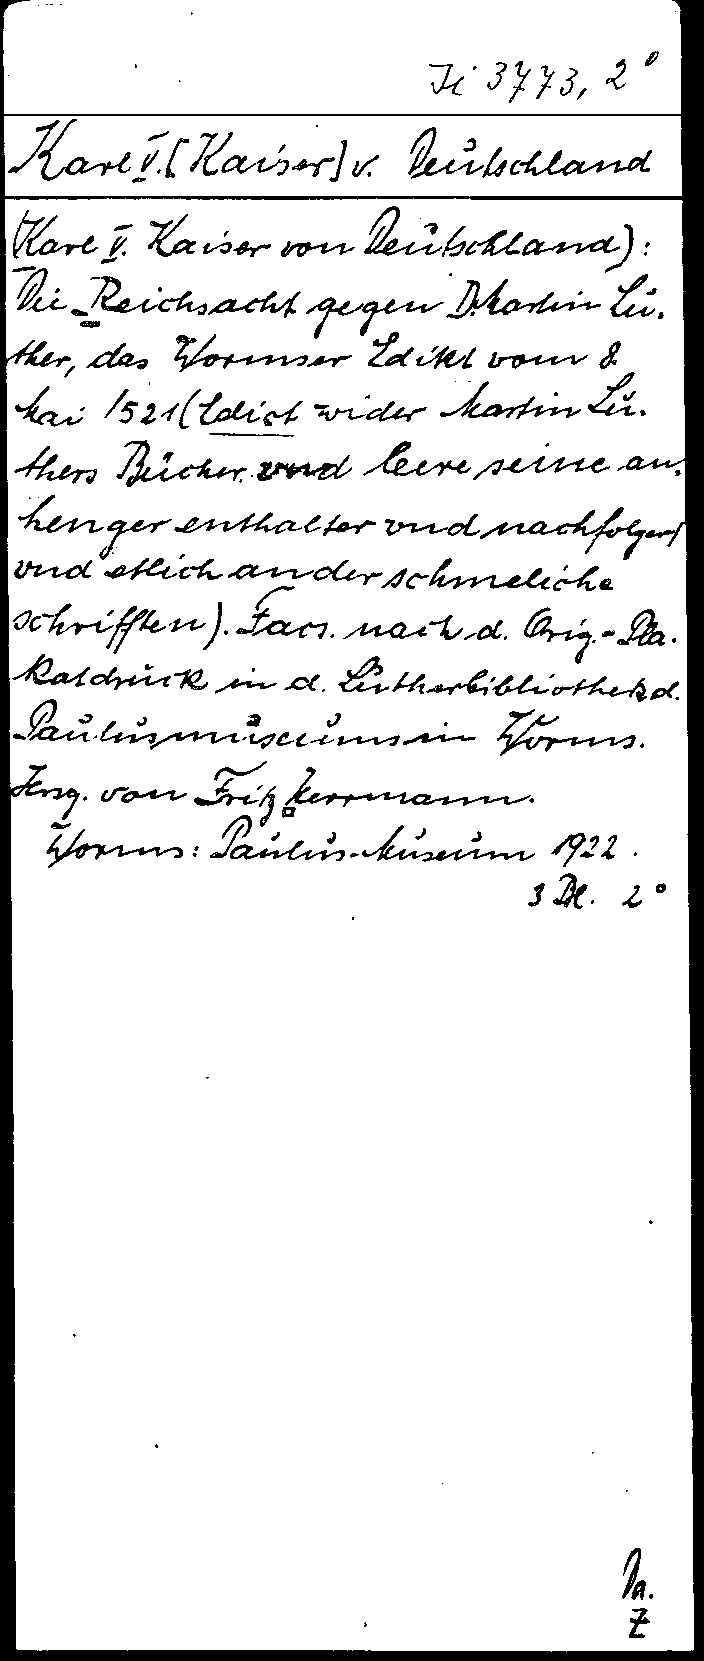 Ji 3773, 2°
Karl V. [Kaiser] v. Deutschland
(Karl V. Kaiser von Deutschland):
Die Reichsacht gegen D. Martin Lu-
ther, das Wormser Edikt vom 8.
Mai 1521 (Edict wider Martin Lu-
thers Bücher vnd leere seine an-
henger enthalter vnd nachfolger
vnd etlich ander schmeliche
schrifften). Facs. nach d. Orig.-Pla-
katdruck in d. Lutherbibliothek d.
Paulusmuseums in Worms.
Hrsg. von Fritz Herrmann.
Worms: Paulus-Museum 1922.
3 Bl. 2°
Da.
Z